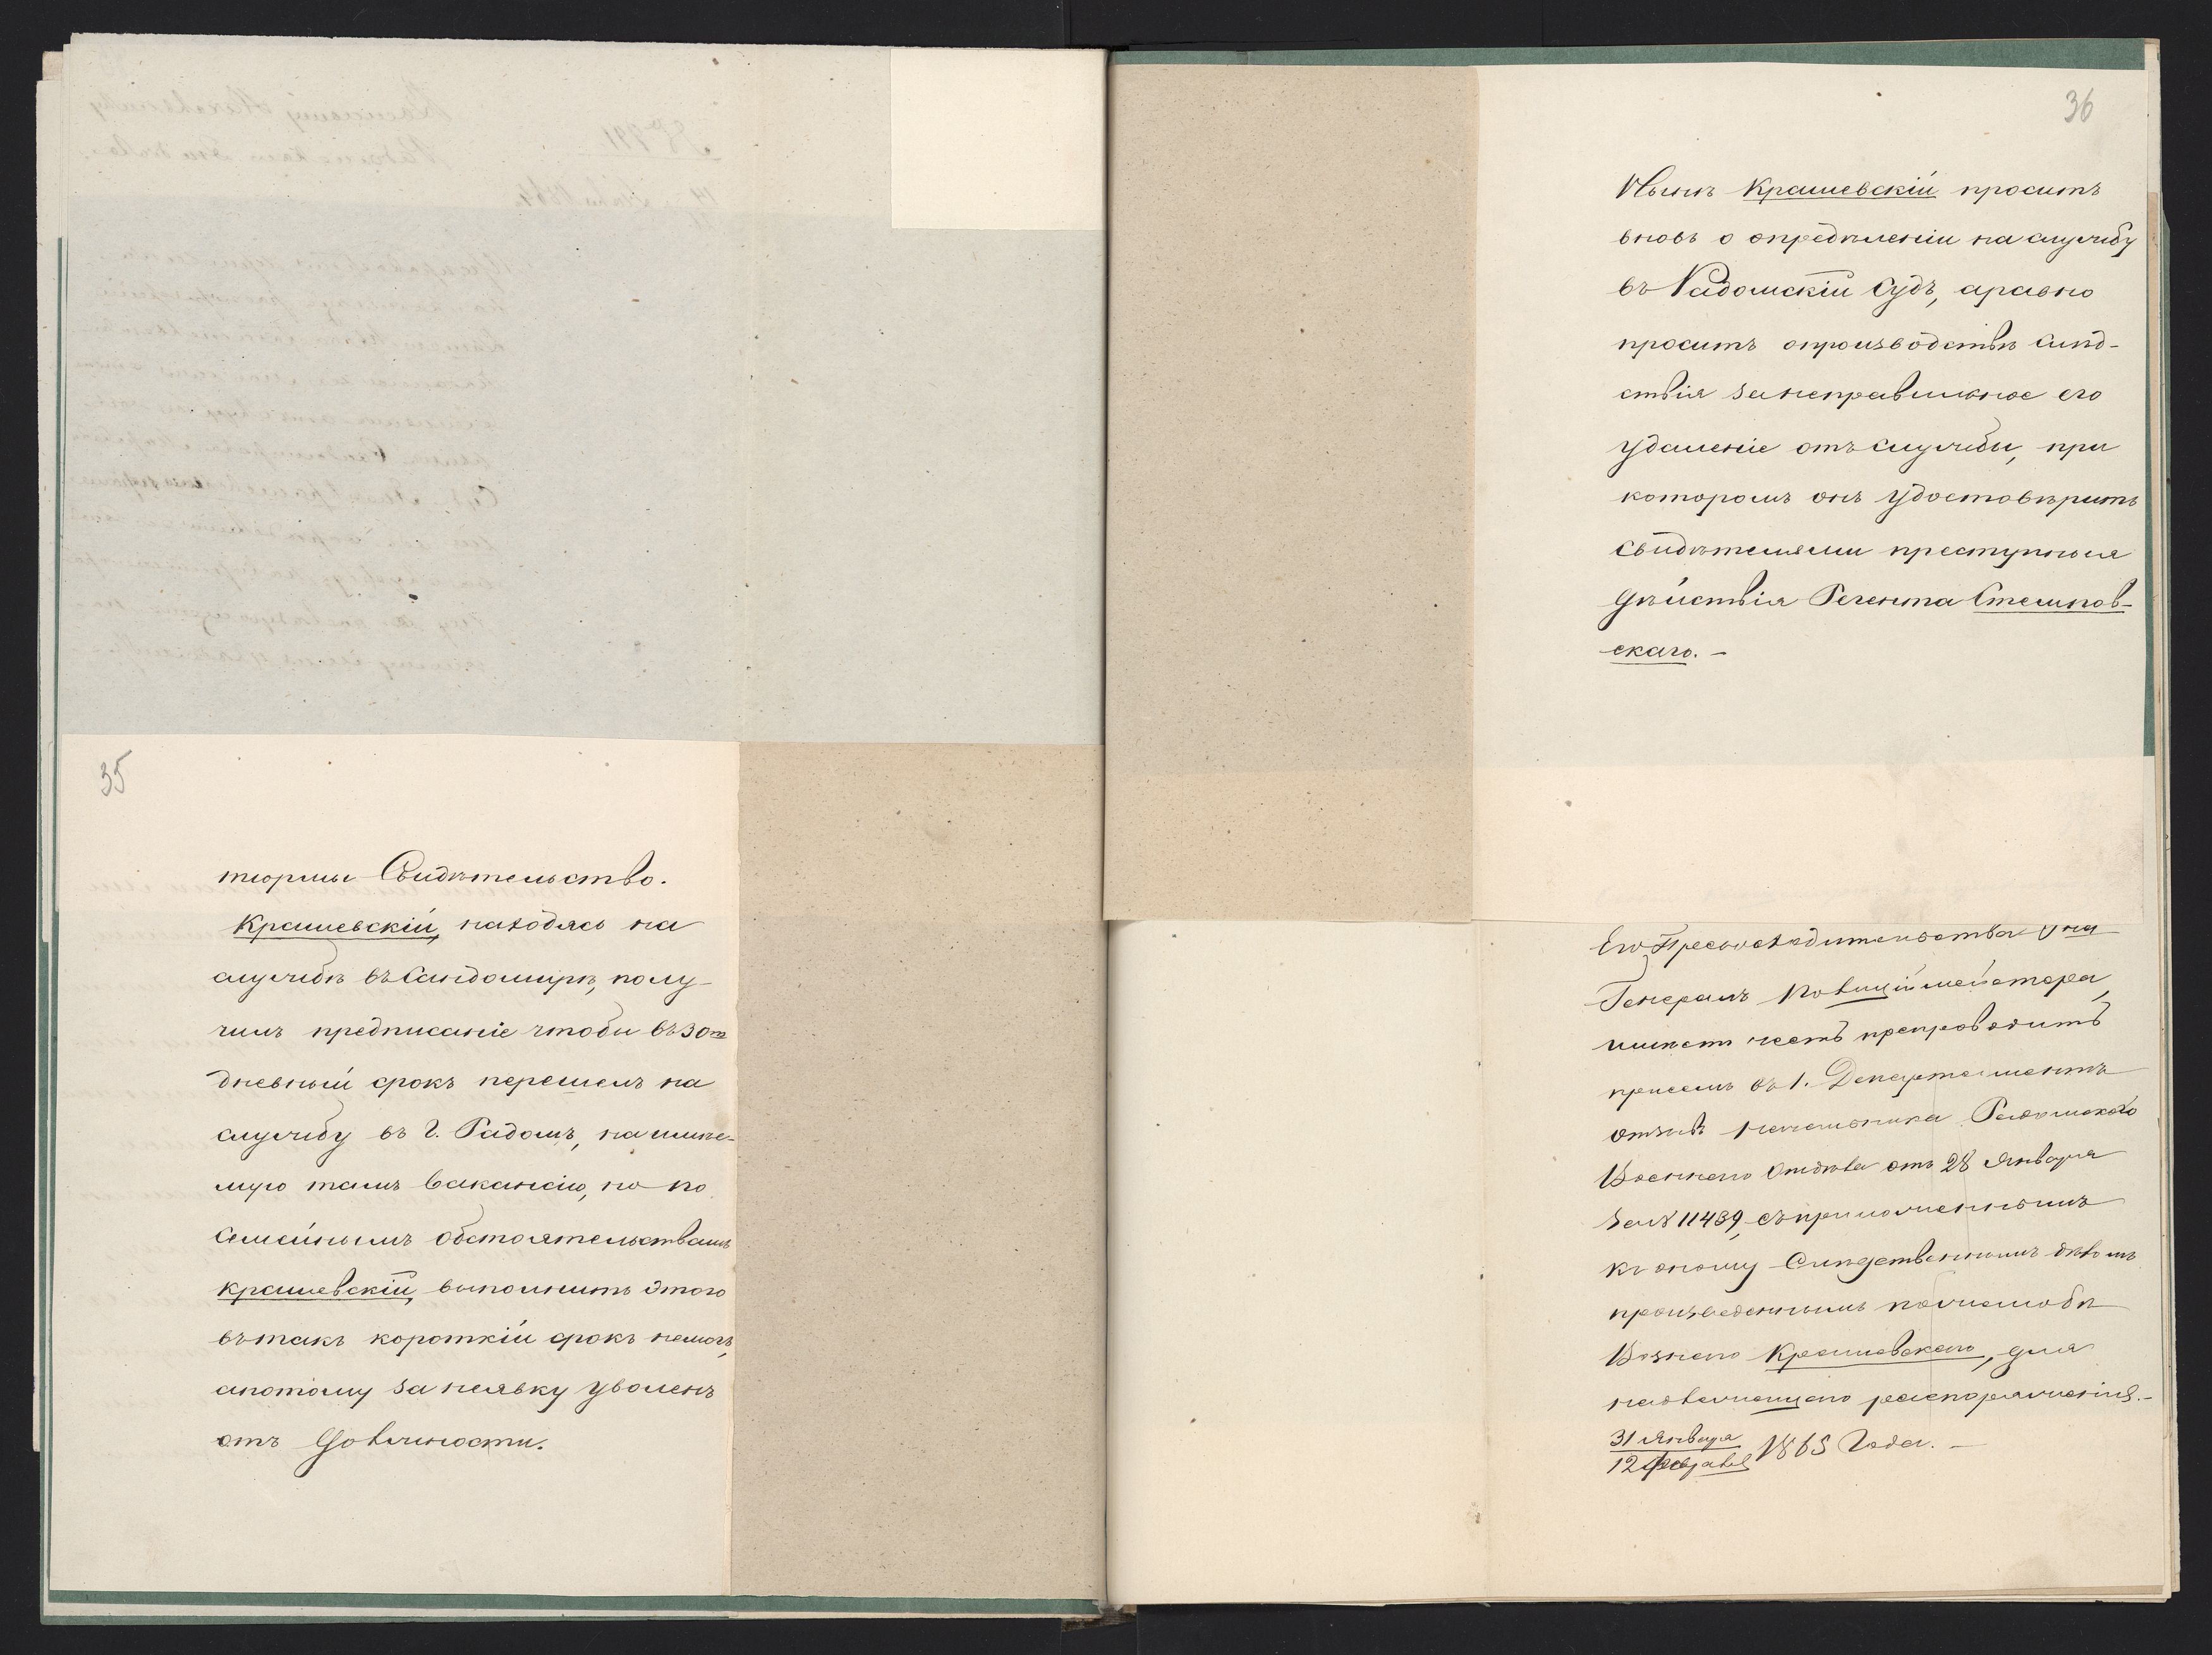 35
тюрмы Свидѣтельство.
Крашевскій, находясь на
службѣ въ Сандомирѣ, полу-
чилъ предписаніе чтобы въ 30ти
дневный срокъ перешелъ на
службу въ г. Радомъ, на имѣе-
мую тамъ вакансію, но по
семейнымъ обстоятельствамъ
Крашевскій, выполнить этого
въ такъ короткій срокъ немогъ,
апотому за неявку уволенъ
отъ должности.
36
Нынѣ Крашевскій проситъ
вновь о опредѣленіи на службу
въ Радомскій Судъ, аравно
проситъ опроизводствѣ слѣд-
ствія занеправильное его
удаленіе отъ службы, при
которомъ онъ удостовѣритъ
свидѣтелями преступныя
дѣйствія Регента Стемпов-
скаго. —
Его Превосходительства Г на
Генералъ Полиціймейстера,
имѣетъ честь препроводить
присемъ въ 1. Департаментъ
отзывъ Начальника Радомскаго
Военнаго Отдѣла отъ 28 Января
за № 11439, съ приложеннымъ
къ оному Слѣдственнымъ дѣломъ
произведеннымъ пожалобѣ
Вознаго Крашевскаго, для
надлежащаго распоряженія. —
31 Января
12 Февраля 1865 года. —